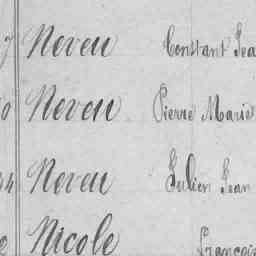 Neveu Constant Jea
Neveu Pierre Marie
Neveu Julien Jean
Nicole François